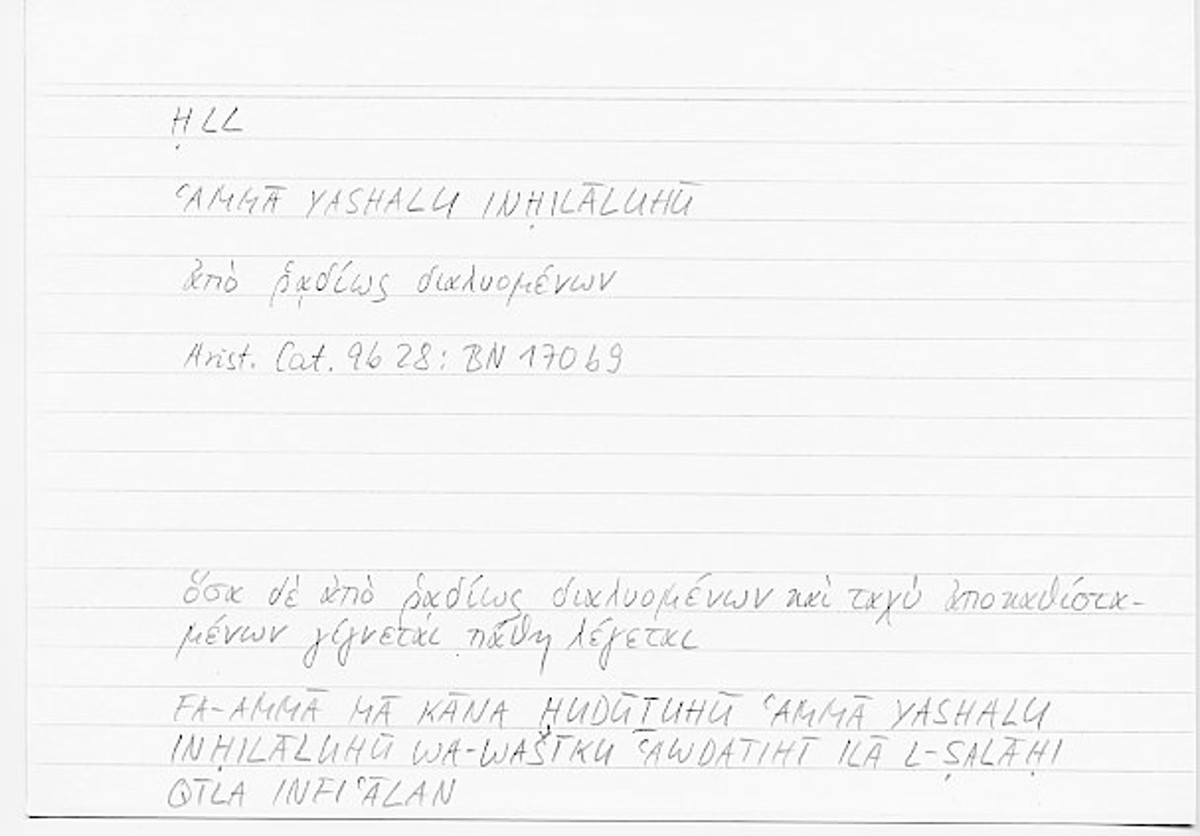 ḤLL
ʿAMMĀ YASHALU INḤILĀLUHŪ
ἀπὸ ῥᾳδίως διαλυομένων
Arist. Cat. 9b 28: BN 170b9
ὅσα δὲ ἀπὸ ῥᾳδίως διαλυομένων καὶ ταχὺ ἀποκαθιστα-
μένων γίγνεται πάθη λέγεται
FA-AMMĀ MĀ KĀNA ḤUDŪṮUHŪ ʿAMMĀ YASHALU
INḤILĀLUHŪ WA-WAŠĪKU ʿAWDATIHĪ ILĀ L-ṢALĀḤI
QĪLA INFIʿĀLAN